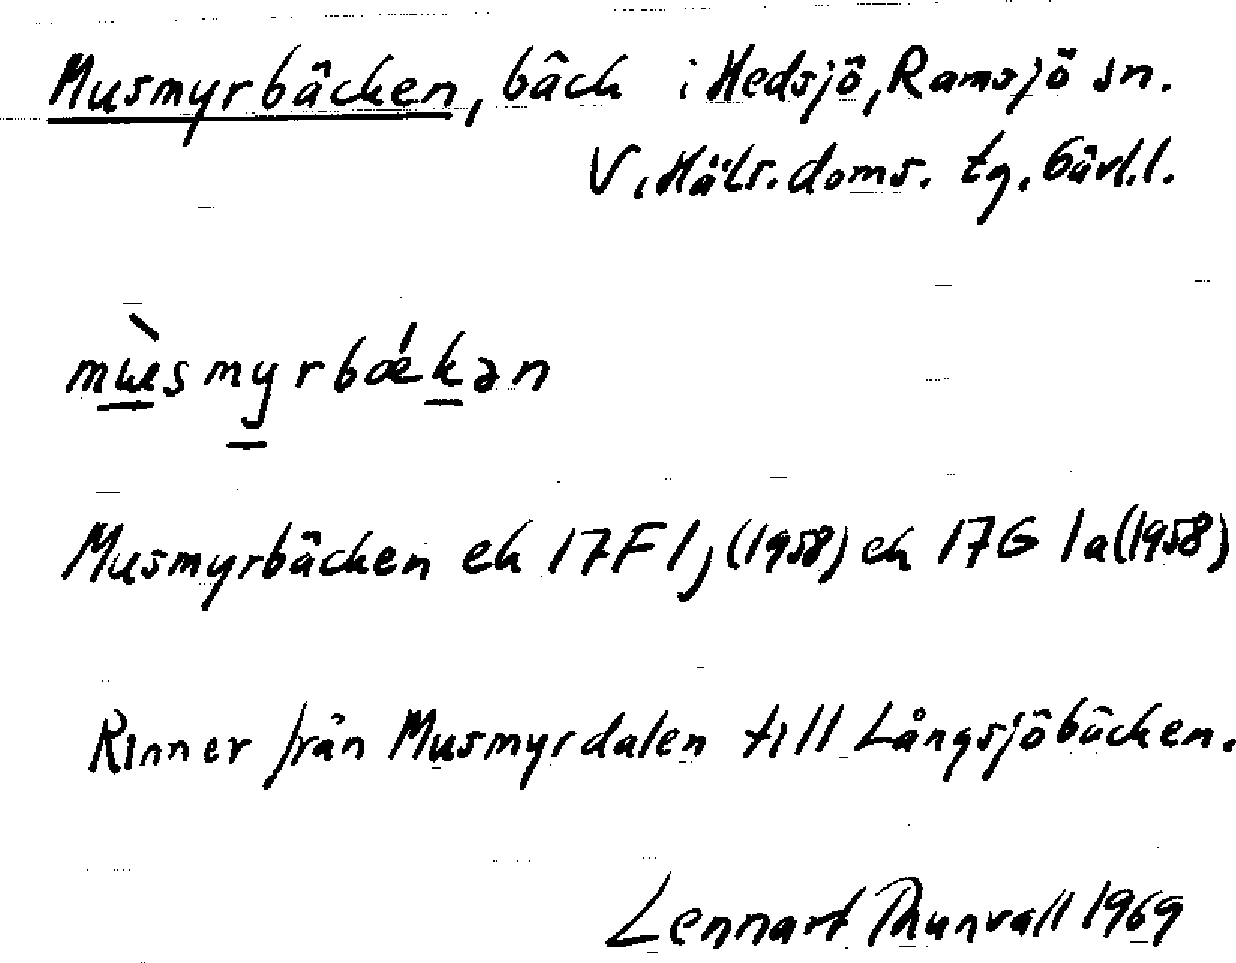 Musmyrbäcken, bäck i Hedsjö, Ramsjö sn.
V. Häls. doms. tg. Gävl.l.
mɯ̀smyrbǽkən
Musmyrbäcken ek 17F 1j (1958) ek 17G 1a (1958)
Rinner från Musmyrdalen till Långsjöbäcken.
Lennart Thunvall 1969